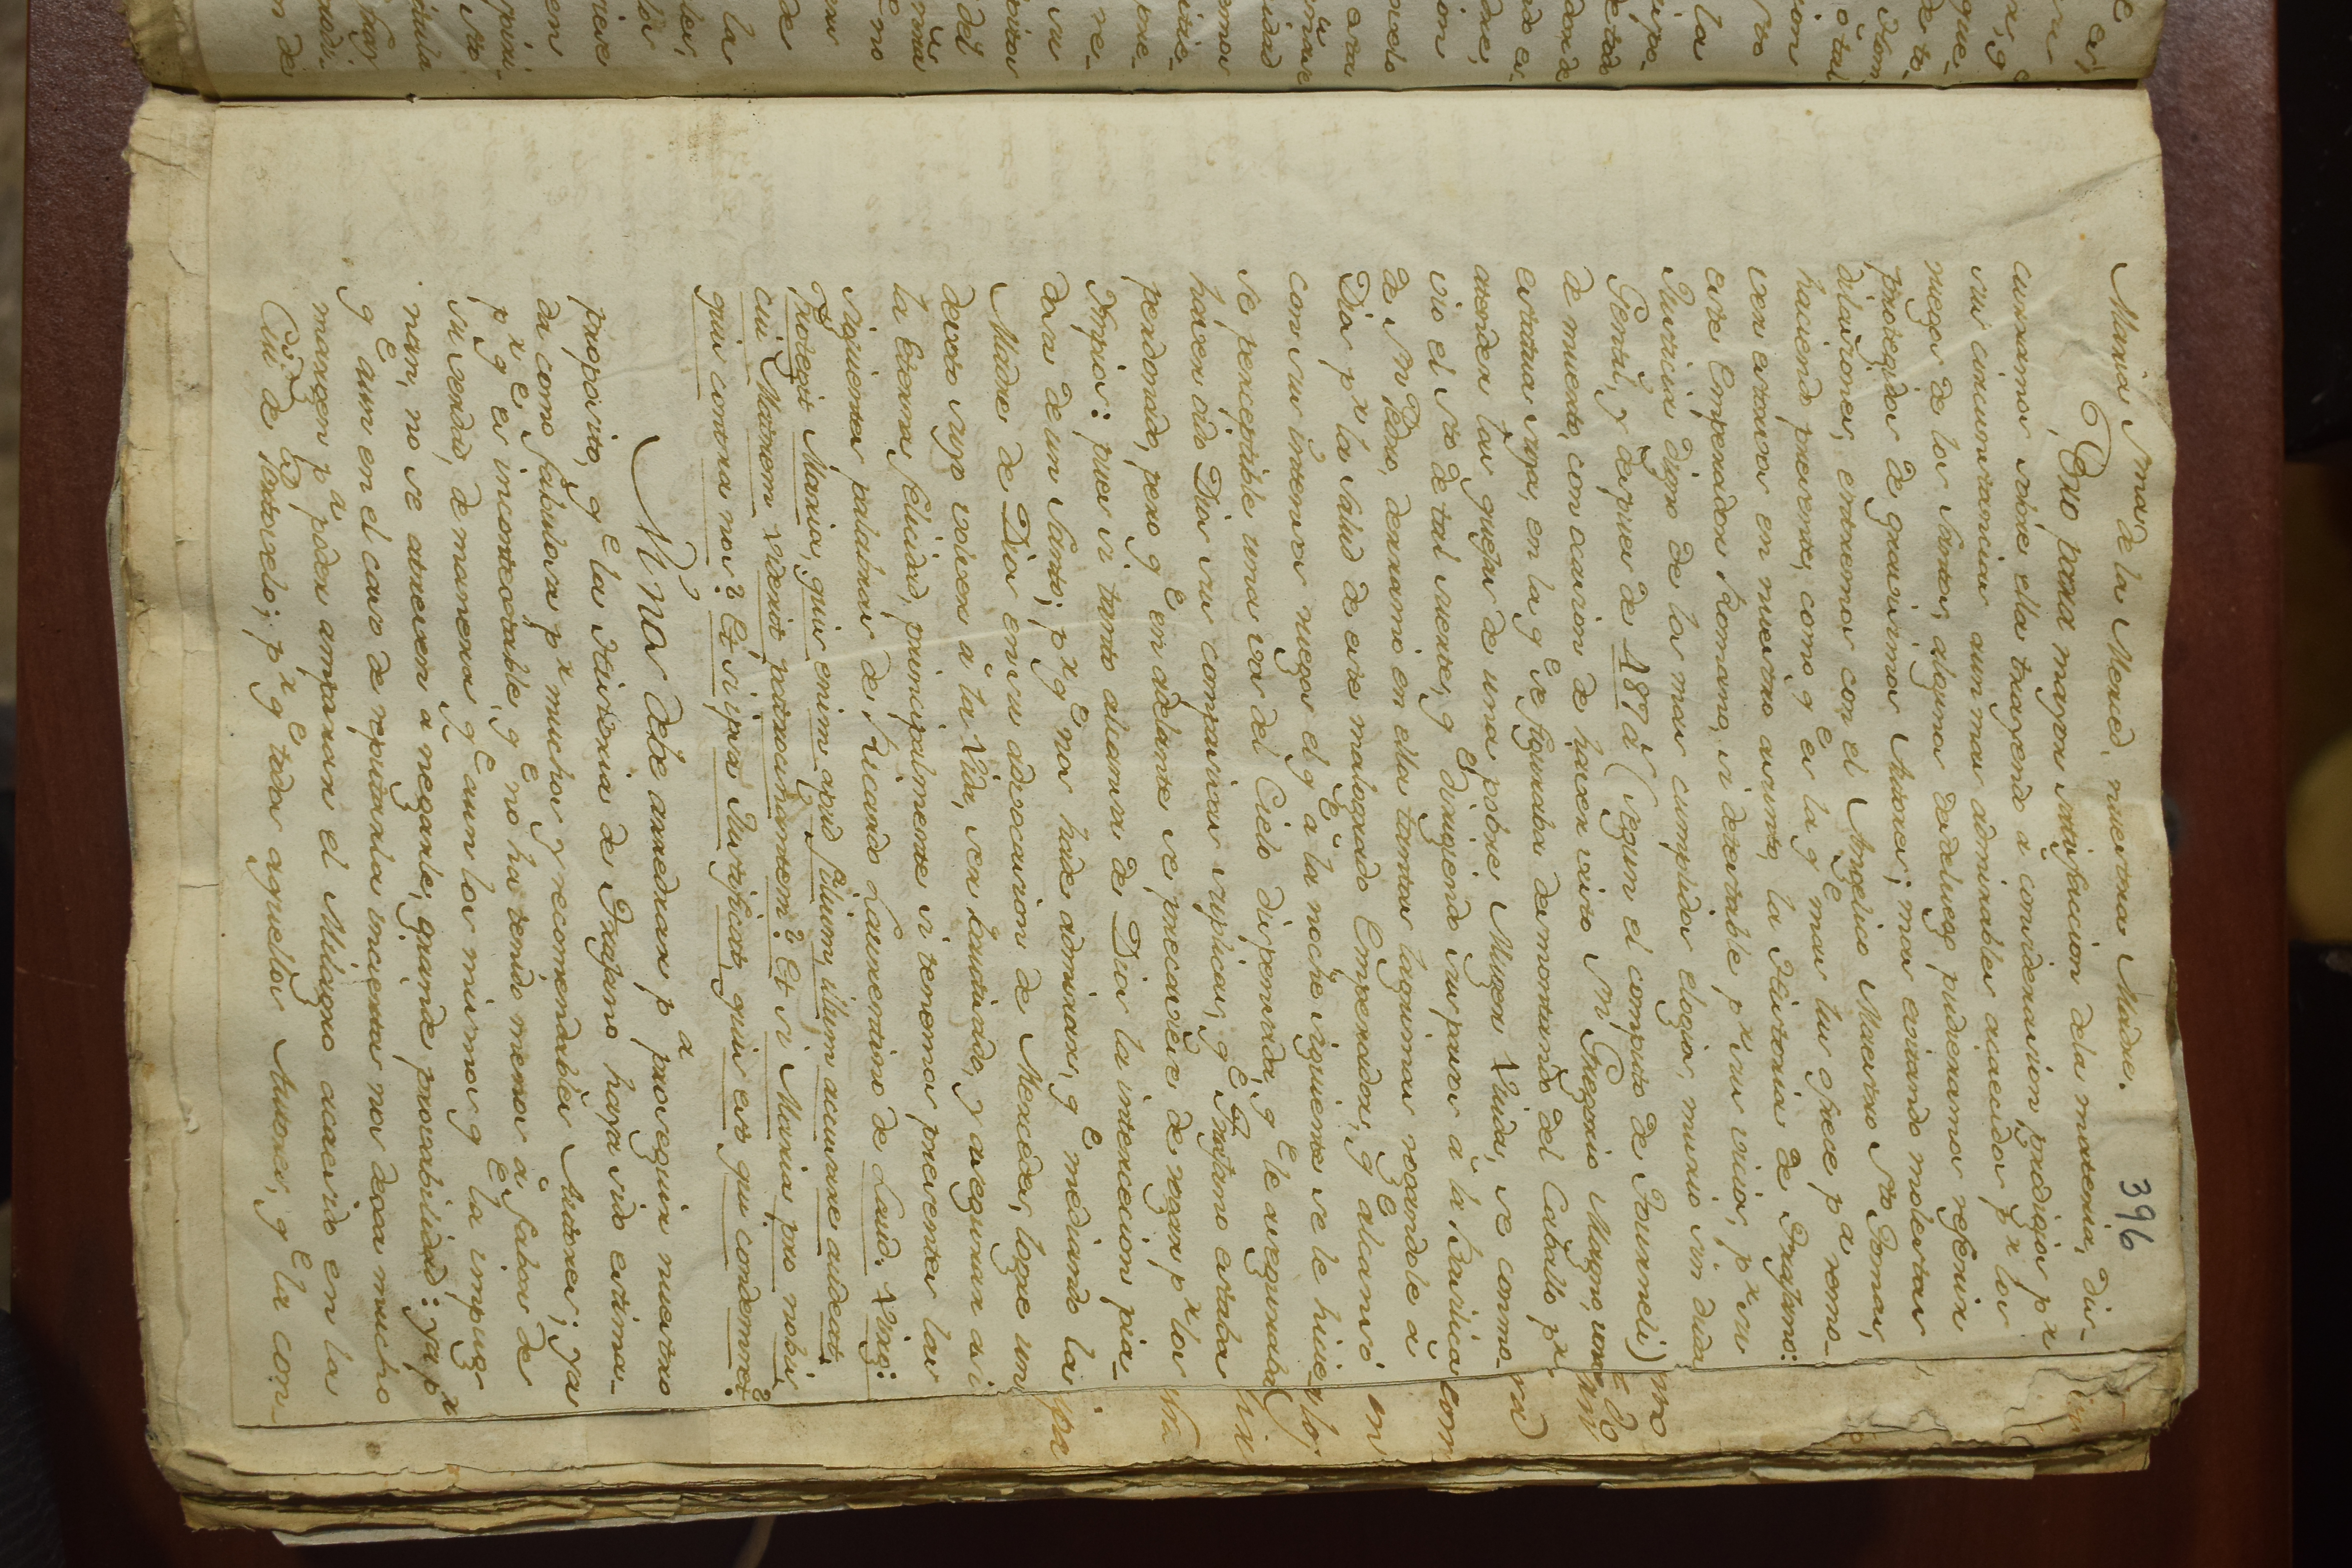 396
Maria Sma de la Merced, nuestra Madre.
Pero para mayor satisfaccion dela materia, dis-
curramos sobre ella trayendo a consideracion prodigios pr
sus circunstancias aun mas admirables acaecidos pr los
ruegos de los Santos, algunos de ellos pudieramos referir
protegidos de gravisimos Autores; mas evitando molestar
dilaciones, entremos con el Angelico Maestro Sto Tomas,
haciendo presente, como qe es la qe mas luz ofrece pa remo-
ver estorvos en nuestro asunto, la Historia de Trajano:
este Emperador Romano, si detestable pr sus vicios, pr su
Justicia digno de los mas cumplidos elogios, murio sin duda
Gentil, y despues de 487 as (segun el computo de Tournely)
de muerto, con ocasion de haver visto Sn Gregorio Magno, una
estatua suya, en la qe se figuraba desmontando del Caballo pr
atender las quejas de una pobre Muger Viuda, se conmo-
vio el Sto de tal suerte, qe dirigiendo sus pasos à la Basilica
de Sn Pedro, derramò en ella tantas lagrimas rogandole à
Dios pr la salud de este malogrado Emperador, qe alcanzò
con sus intensos ruegos el qe à la noche siguiente se le hicie-
se perceptible una voz del Cielo dispensada, qe le aseguraba
haver oido Dios sus compasivas suplicas, qe Trajano estaba
perdonado, pero qe en adelante se precaviese de rogar pr los
Impios: pues si tanto alcanza de Dios la intercecion pia-
dosa de un Santo; pr qe nos hade admirar, qe mediando la
Madre de Dios en su advocacion de Mercedes, logre un
devoto suyo volver à la Vida, ser bautizado, y asegurar asi
la Eterna felicidad, principalmente si tenemos presentes las
siguientes palabras de Ricardo Laurentino de Laud. Virg:
Protegit Maria, quis enim apud filium, illum accusare audeat,
cui Matrem viderit patrocinantem? Et si Maria pro nobis,
quis contra nos? Et si ipsa Justificat, quis est qui condemnet?
Ni nos debe arredrar pa proseguir nuestro
proposito, qe la Historia de Trajano haya sido estima-
da como fabulosa pr muchos y recomendables Autores; ya
pr qe es incontextable, qe no ha tenido menos à favor de
su verdad, de manera qe aun los mismos qe la impug-
nan, no se atreven à negarle, grande provabilidad: ya pr
qe aun en el caso de reputarla incierta nos dexa mucho
margen pa poder amparar el Milagro acaecido en la
Ciud de Portovelo; pr qe todos aquellos Autores, qe la con-